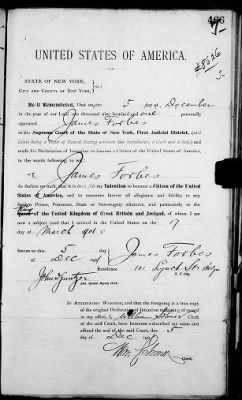 466
UNITED STATES OF AMERICA.
STATE OF NEW YORK,
CITY AND COUNTY OF NEW YORK, } ss.:
Be it Remembered, That on the 5 day December
in the year of our Lord one thousand nine hundred and personally
appeared James Forbes
in the Supreme Court of the State of New York, First Judicial District, (said
Court being a Court of Record, having common law jurisdiction, a Clerk and a Seal) and
made his Declaration of Intention to become a Citizen of the United States of America,
in the words following, to wit:
"I, James Forbes
do declare on oath, that it is bona fide my Intention to become a Citizen of the United
States of America, and to renounce forever all allegiance and fidelity to any
foreign Prince, Potentate, State or Sovereignty whatever, and particularly to the
of the United Kingdom of Great Britain and Ireland, of whom I am
now a subject and that I arrived in the United States on the 17
day of March
Sworn to this 5
day of Dec
James Forbes
Residence 101 Lynch St
Special Deputy Clerk.
IN ATTESTATION WHEREOF, and that the foregoing is a true copy
of the original Declaration of Intention remaining of record
in my office, I, William Sohmer Clerk
of the said Court, have hereunto subscribed my name and
affixed the seal of the said Court, this 5
day of Dec
Wm Sohmer
Clerk.